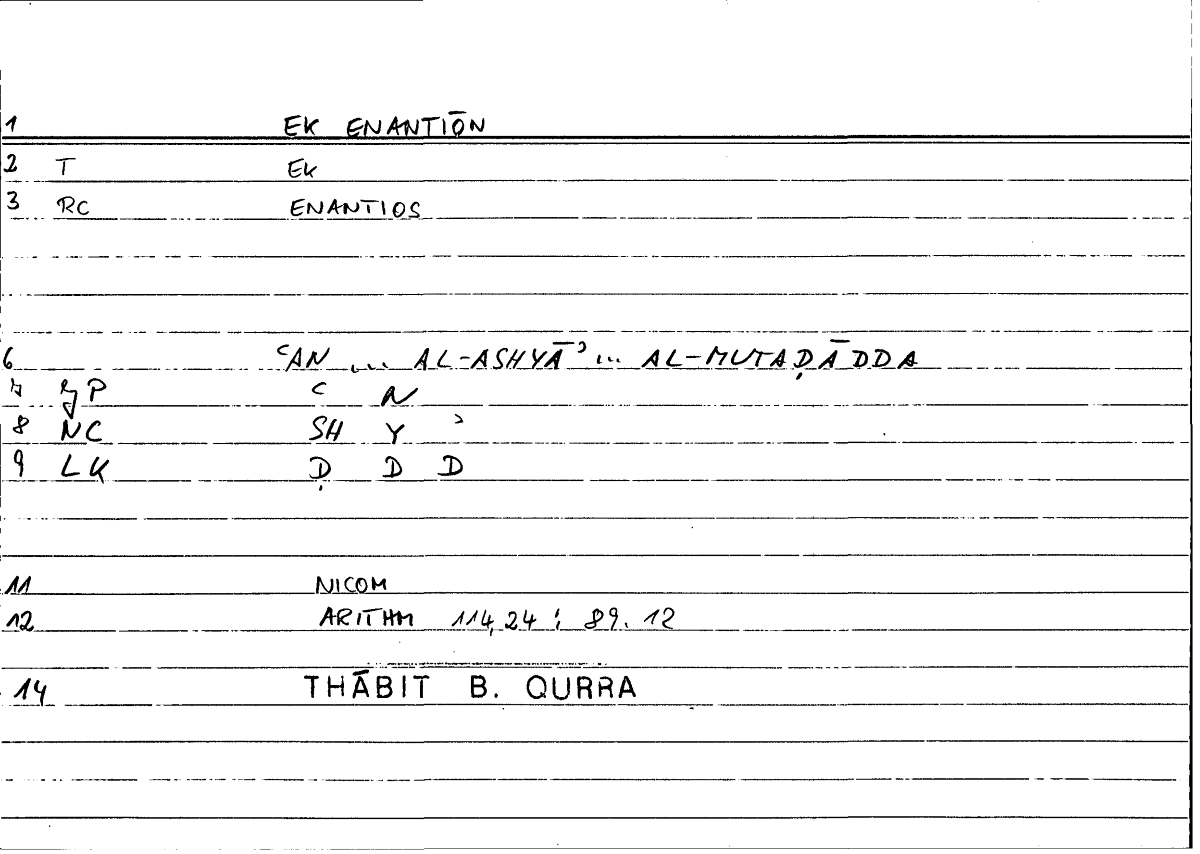 1 EK ENANTIŌN
2 T Ek
3 RC ENANTIOS
6 ʿAN ... AL-ASHYĀʾ ... AL-MUTAḌĀDDA
7 P ʿ N
8 NC SH Y ʾ
9 LK Ḍ D D
11 NICOM
12 ARITHM 114,24 ; 89.12
14 THĀBIT B. QURRA